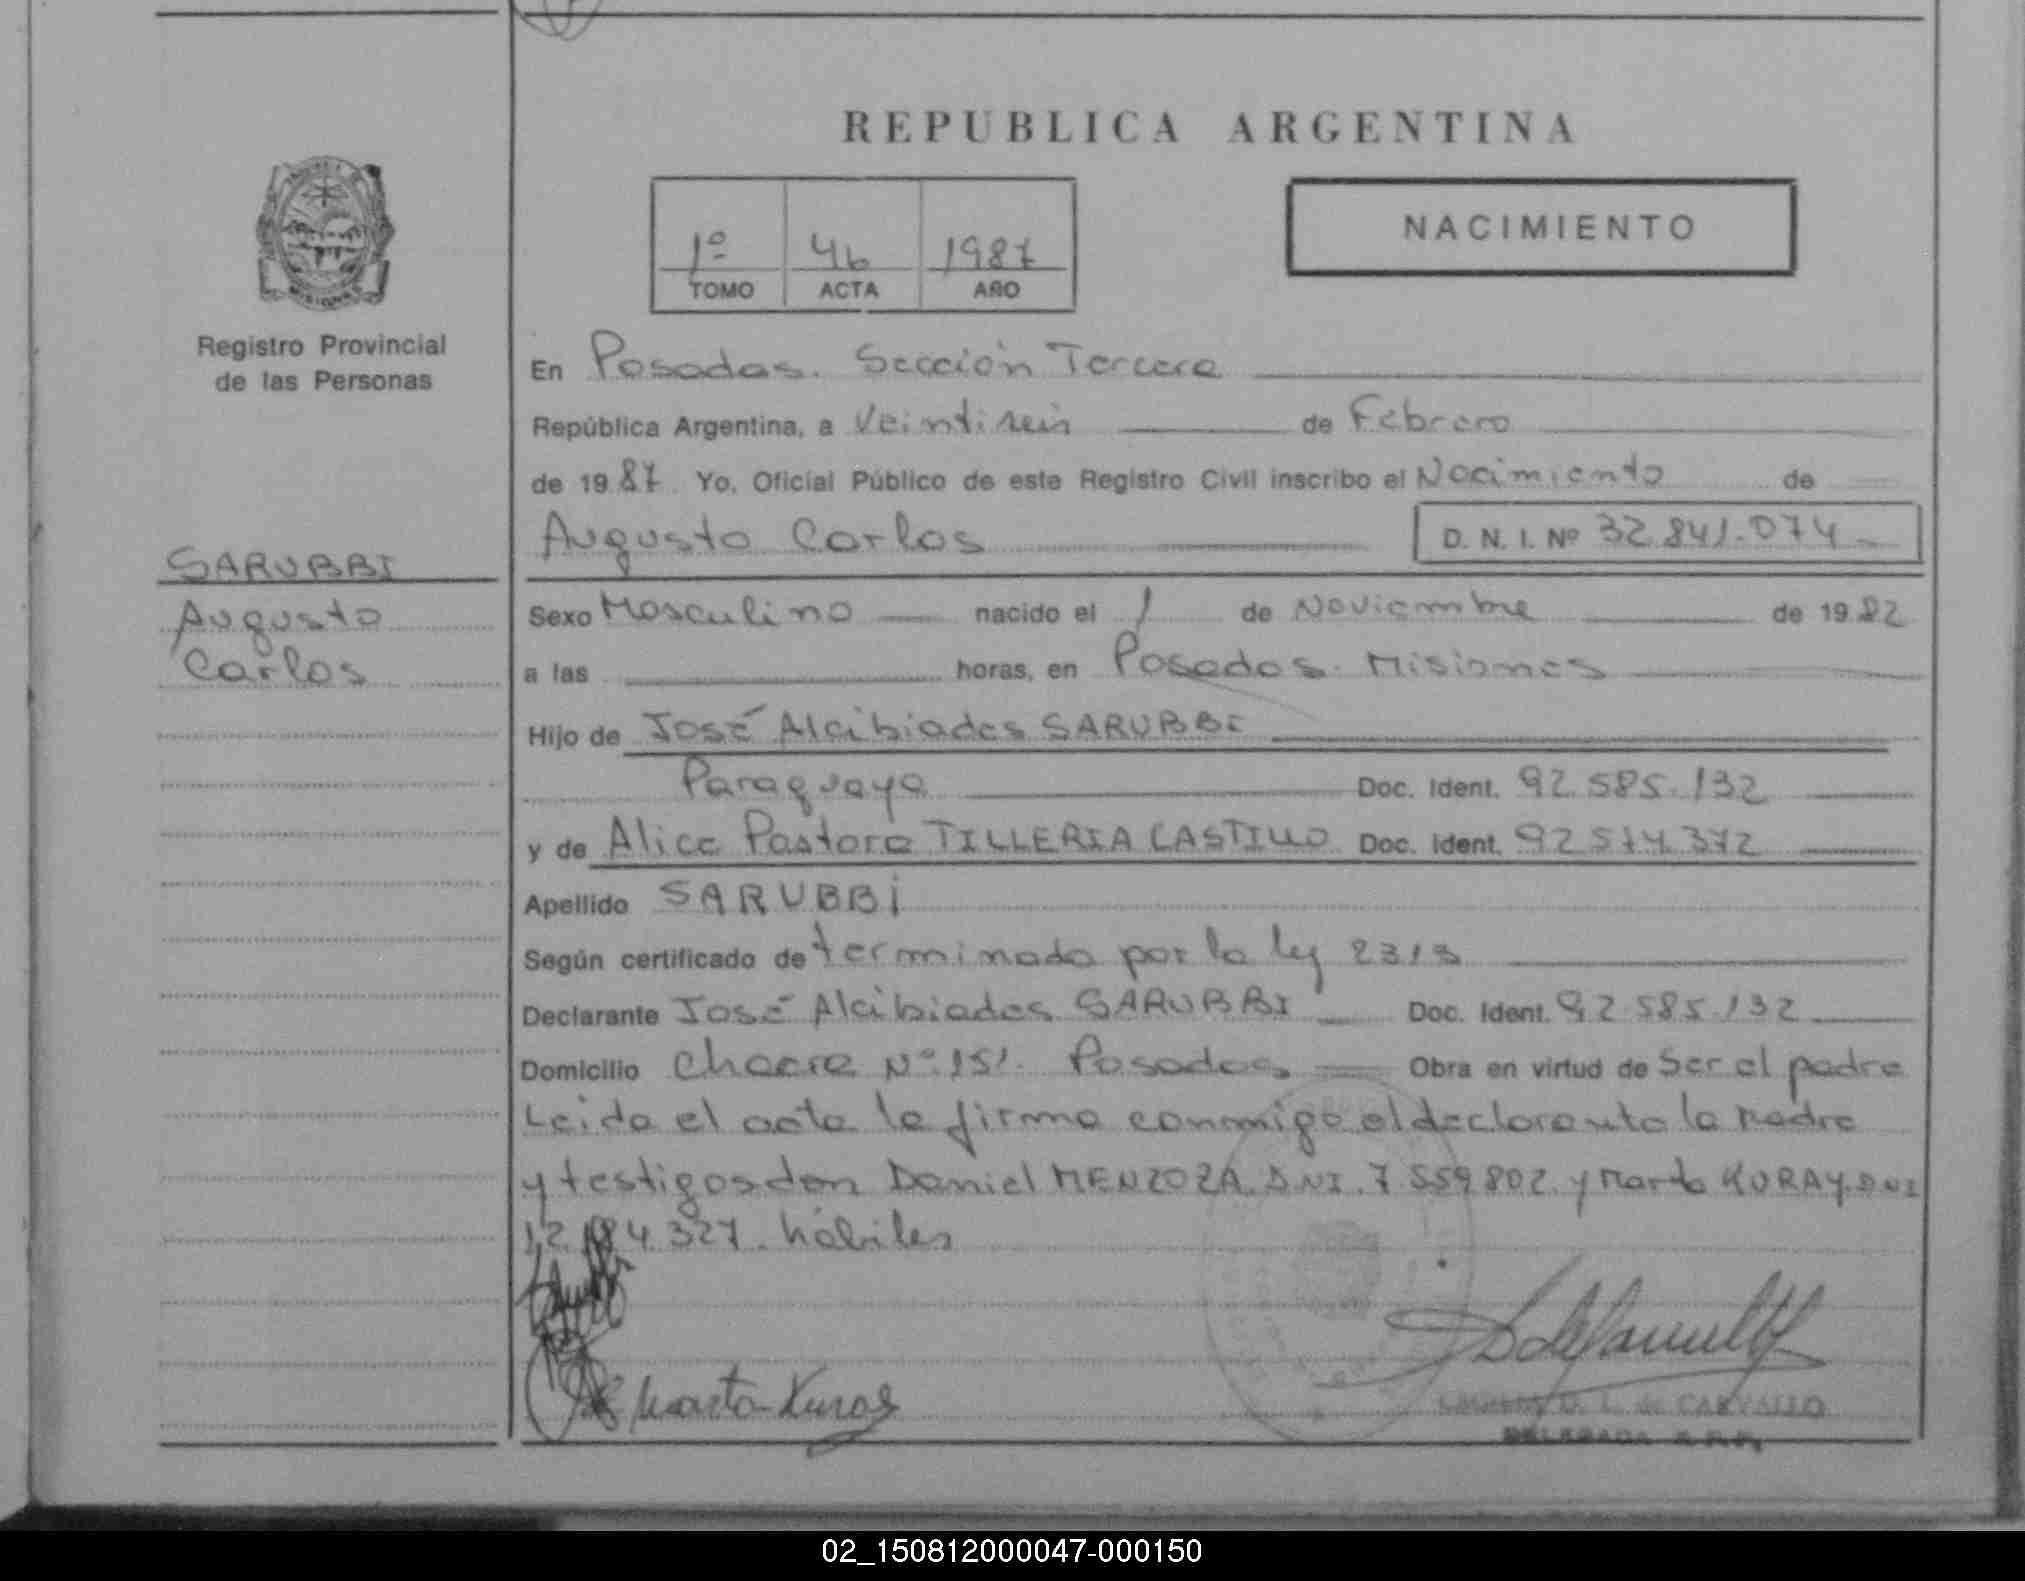 REPUBLICA ARGENTINA
NACIMIENTO
1º 46 1987
TOMO ACTA AÑO
MISIONES
Registro Provincial
de las Personas
SARUBBI
Augusto
Carlos
En Posadas. Sección Tercera
República Argentina, a Veintiseis de Febrero
de 1987 Yo, Oficial Público de este Registro Civil inscribo el Nacimiento de
Augusto Carlos D. N. I. Nº 32.841.074
Sexo Masculino nacido el 1 de Noviembre de 1982
a las horas, en Posadas. Misiones
Hijo de José Alcibiades SARUBBI
Paraguayo Doc. Ident. 92.585.132
y de Alice Pastora TILLERIA CASTILLO Doc. Ident. 92.574.372
Apellido SARUBBI
Según certificado de terminado por la ley 2313
Declarante José Alcibiades SARUBBI Doc. Ident. 92.585.132
Domicilio Chacra Nº 151. Posadas Obra en virtud de Ser el padre
Leida el acta la firma conmigo el declarante la Madre
y testigos don Daniel MENZOZA. DNI. 7.559.802. y Marta KURAY. DNI
12. 327. hábiles
Marta Kuray
D. L. de CARVALLO
DELEGADA R.P.P.
02_150812000047-000150